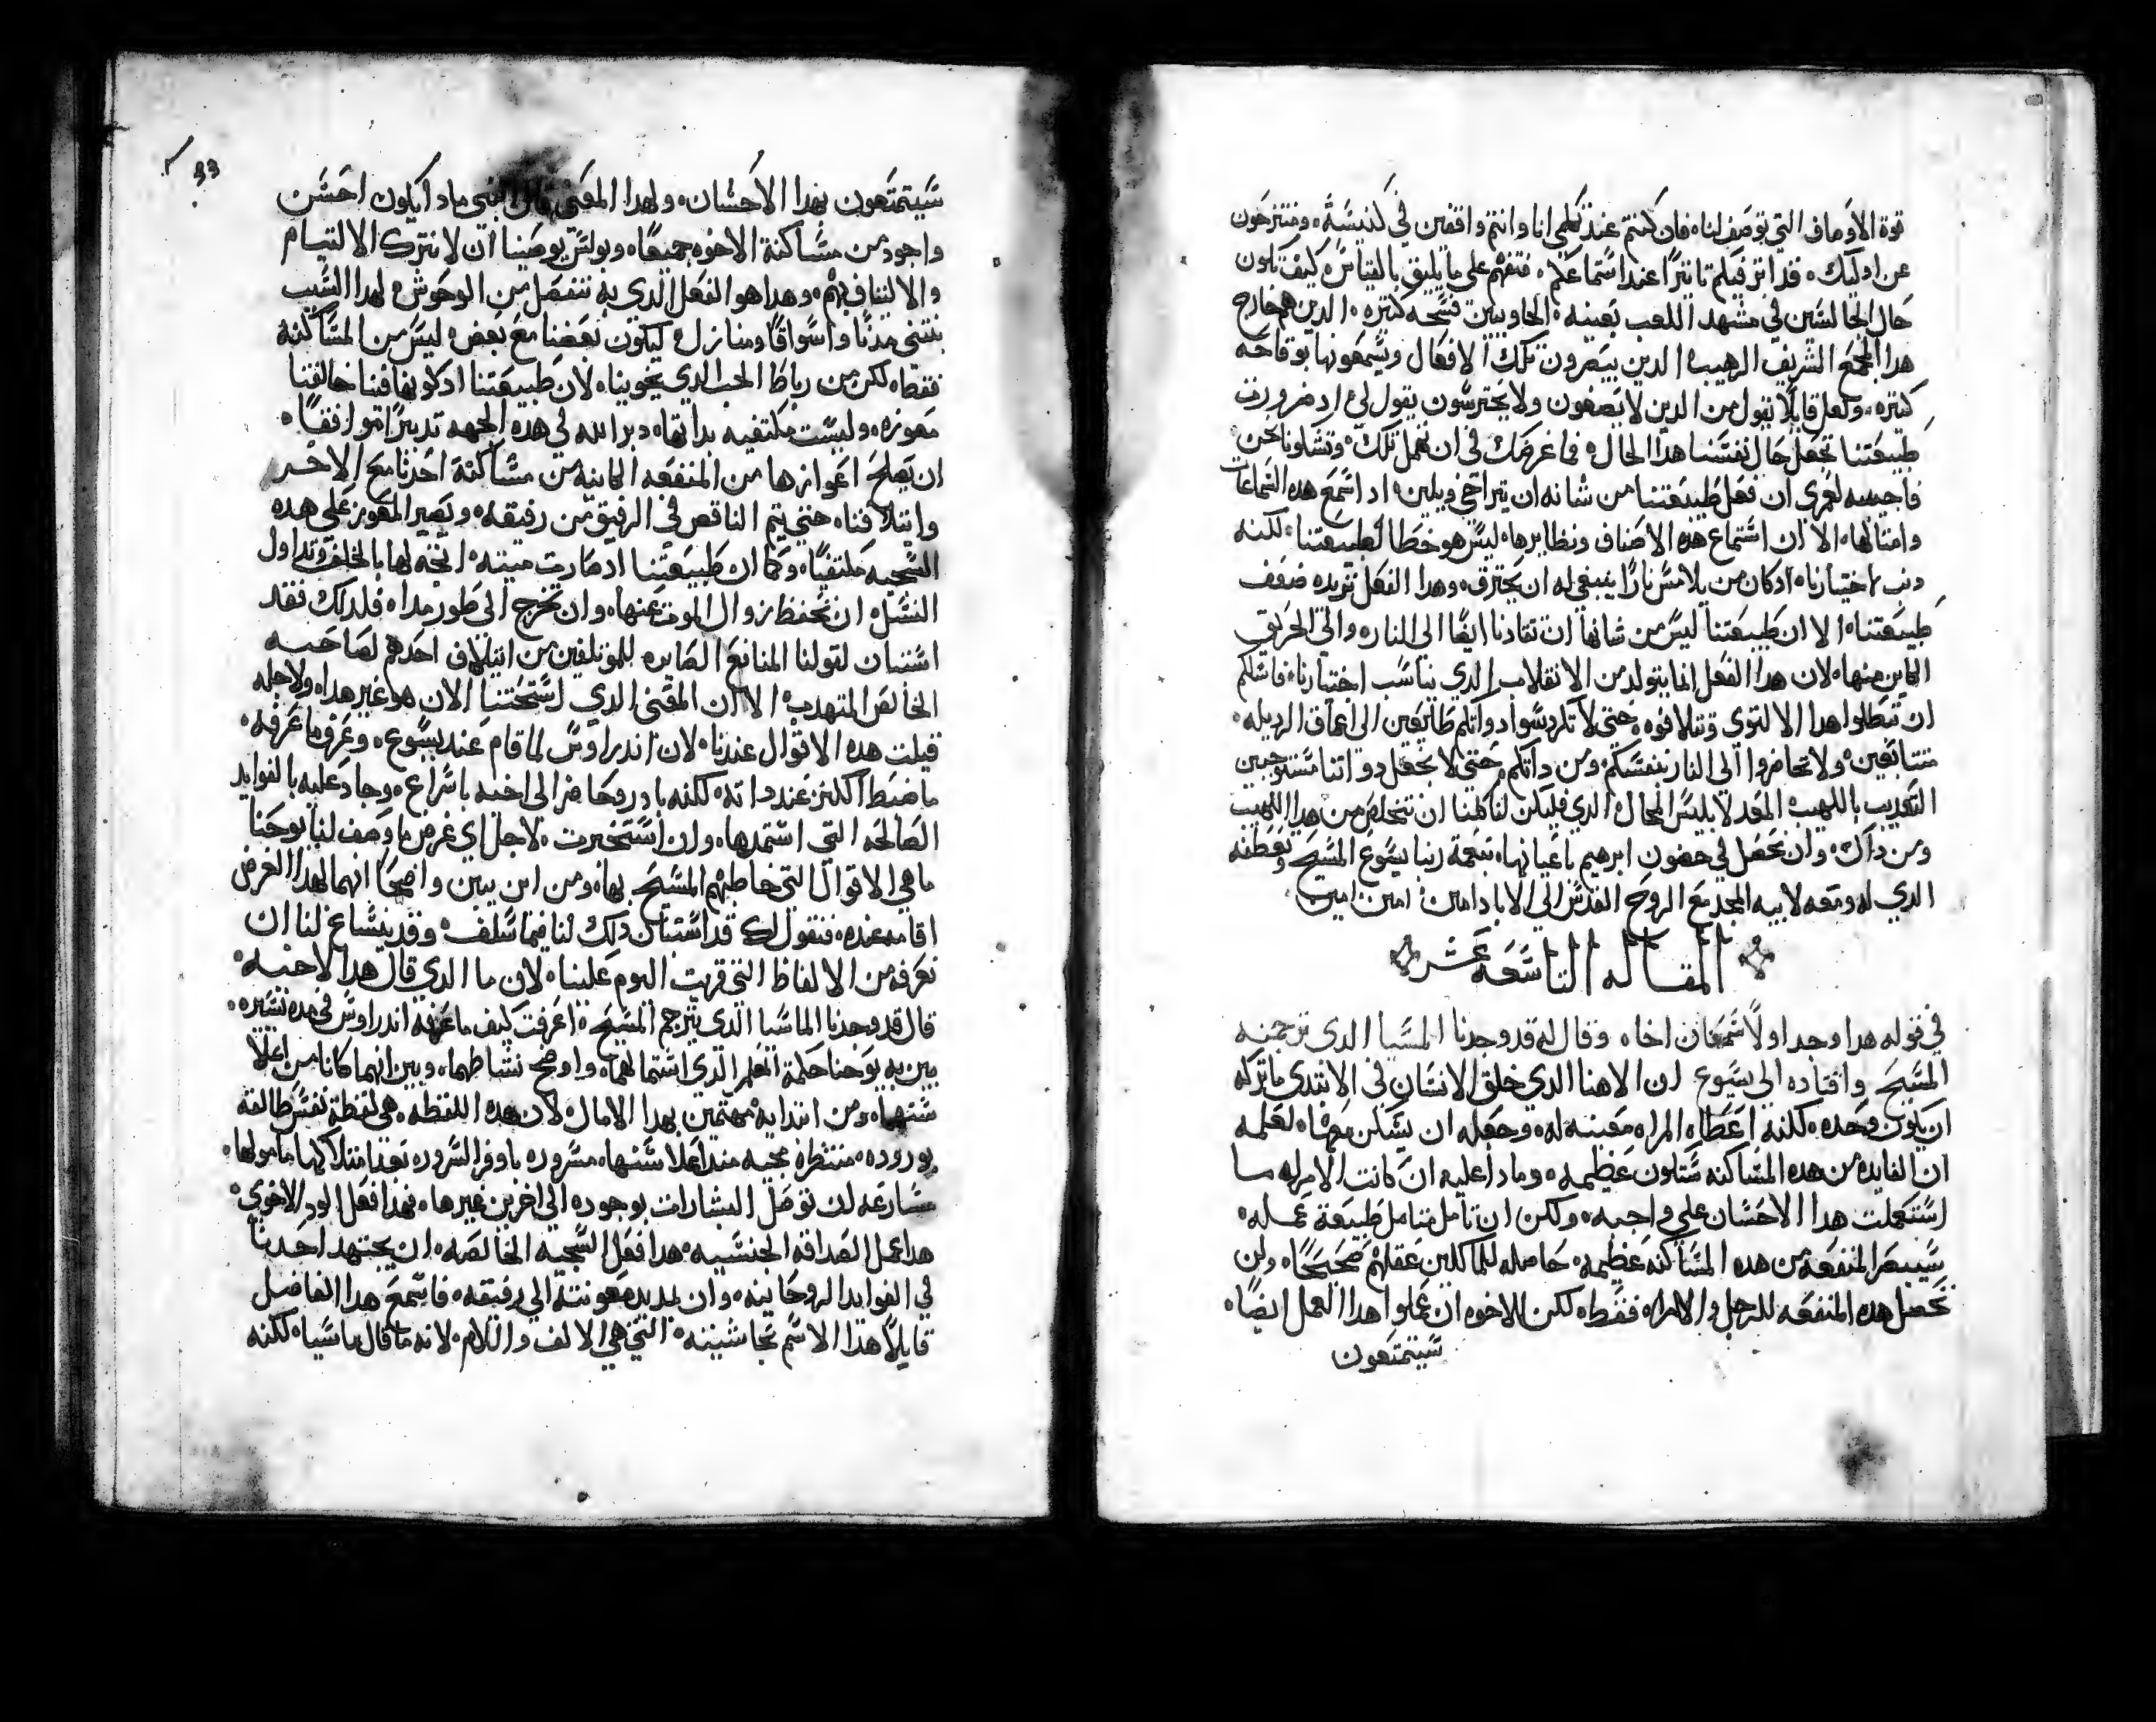 قوة الاوصاف التي توصف لنا، فان كنتم عند تكلمي انا وانتم واقفين في كنيسة، ومنتزحون
عن اوليك، قد اثر فيكم تاثيرًا عند استماعكم، فتفهم علي ما يليق بالقياس كيف تكون
حال الجالسين في مشهد اللعب بعينه، الحاويين فسحه كتيره، الدين هم خارج
هدا المجمع الشريف الرهيب، الدين يبصرون تلك الافعال ويسمعونها بوقاحه
كتيره، ولعل قايلًا يقول من الدين لا يصغون ولا يحترسون يقول لي اد ضرورت
طبيعتنا تجعل حال نفسنا هدا الحال، فما غرضك في ان تهمل تلك، وتشكونا نحن
فاجيبه لعمري ان فعل طبيعتنا من شانه ان يتراخي ويلين، اد اسمع هده السماعات
وامثالها، الا ان استماع هده الاصناف ونظايرها، ليس هو خطا لطبيعتنا، لكنه
دنب اختيارنا، ادكان من يلامس نارًا ينبغي له ان يحترق، وهدا الفعل تريده ضعف
طبيعتنا، الا ان طبيعتنا ليس من شانها ان تقتادنا ايضًا الي النار، والي الحريق
الكاين منها، لان هدا الفعل انما يتولد من الانقلاب الدي يناسب اختيارنا، فاسلكم
ان تبطلوا هدا الالتوي وتتلافوه، حتي لا تكردسوا دواتكم طايعين الي اعماق الرديله،
متسابقين، ولا تحاضروا الي النار بنفسكم، ومن داتكم، حتي لا نجعل دواتنا مستوجبين
التعديب باللهيب المعد لابليس المحال، الدي فليكن لنا كلنا ان نتخلص من هدا اللهيب
ومن داك، وان نحصل في حضون ابرهيم باعيانها، بنعمة ربنا يسوع المسيح وتعطفه
الدي له ومعه لابيه المجد مع الروح القدس الي الاباد امين امين امين
المقاله التاسعه عشر
في قوله هدا وجد اولًا شمعان اخاه وقال له قد وجدنا المسيا الدي ترجمته
المسيح واقتاده الي يسوع ان الاهنا الدي خلق الانسان في الابتدي ما تركه
ان يكون وحده، لكنه اعطاه المراه معينه له، وجعله ان يسكن معها، لعلمه
ان الفايده من هده المساكنه ستكون عظيمه، وما دا عليه ان كانت الامراه ما
استعملت هدا الاحسان علي واجبه، ولكن ان تامل متامل طبيعة عمله،
سيبصر المنفعه من هده المساكنه عظيمه، حاصله للمالكين عقلهم صحيحًا، ولن
تحصل هده المنفعه للرجل والامراه فقط، لكن الاخوه ان عملوا هدا العمل ايضًا،
سيتمتعون
سيتمتعون بهدا الاحسان، ولهدا المعني قال النبي ما دا يكون احسن
واجود من مساكنة الاخوه جميعًا، وبولس يوصينا ان لا نترك الالتيام
والالتفاف بهم، وهدا هو الفعل الدي به ننفصل من الوحوش، لهدا السبب
نبتني مدنًا واسواقًا ومنازل، ليكون بعضنا مع بعض، ليس من المساكنة
فقط، لكن من رباط الحب الدي يحوينا، لان طبيعتنا اد كونها فينا خالقنا
معوزه، وليست مكتفيه بداتها، دبر الله في هده الجهه تدبيرًا موافقًا،
ان يصلح اعوازها من المنفعه الكاينه من مساكنة احدنا مع الاخر
وايتلافنا، حتي يتم الناقص في الرفيق من رفيقه، ويصير المعوز علي هده
السجيه مكتفيًا، وكما ان طبيعتنا اد صارت ميته، اتجه لها بالخلف وتداول
النسل، ان تحفظ زوال الموت عنها، وان تخرج الي طور مدا، فلدلك فقد
استبان لقولنا المنافع الصايره للموتلفين من ايتلاف احدهم لصاحبه
الخالص المتهدب، الا ان المعني الدي استحتنا الان هو غير هدا، ولاجله
قيلت هده الاقوال عندنا، لان اندراوس لما قام عند يسوع، وعرف ما عرفه،
ما ضبط الكنز عند داته، لكنه بادر وحاضر الي اخيه باسراع، وجاد عليه بالفوايد
الصالحه التي استمدها، وان استخبرت لاجل اي غرض ما وصف لنا يوحنا
ما هي الاقوال التي خاطبهم المسيح بها، ومن اين يبين واضحًا انهما لهدا الغرض
اقاما عنده، فنقول لك قد استبان دلك لنا فيما سلف، وقد ينساغ لنا ان
نعرفه من الالفاظ التي قريت اليوم علينا، لان ما الدي قال هدا لاخيه،
قال قد وجدنا الماسيا الدي يترجم المسيح، اعرفت كيف ما عرفه اندراوس في مده يسيره،
بين به يوحنا حكمة المعلم الدي استمالهما، واوضح نشاطهما، وبين انهما كانا من اعلا
سنهما، ومن ابتدايه مهتمين بهدا الامال، لان هده اللفظه، هي لفظة نفس طالقه
بوروده، منتظره مجيه منداعلا سنها، مسروره باوفر السرور، بعد امتلاكها مامولها،
مسارعه لان توصل البشارات بوجوده الي اخرين غيرها، فهدا فعل الود الاخوي
هدا عمل الصداقه الجنسيه، هدا فعل السجيه الخالصه، ان يجتهد احدنا
في الفوايد الروحانيه، وان يمد يد معونته الي رفيقه، فاسمع هدا الفاضل
قايلًا هدا الاسم بحاشيته، التي هي الالف واللام، لانه ما قال ماسيا، لكنه